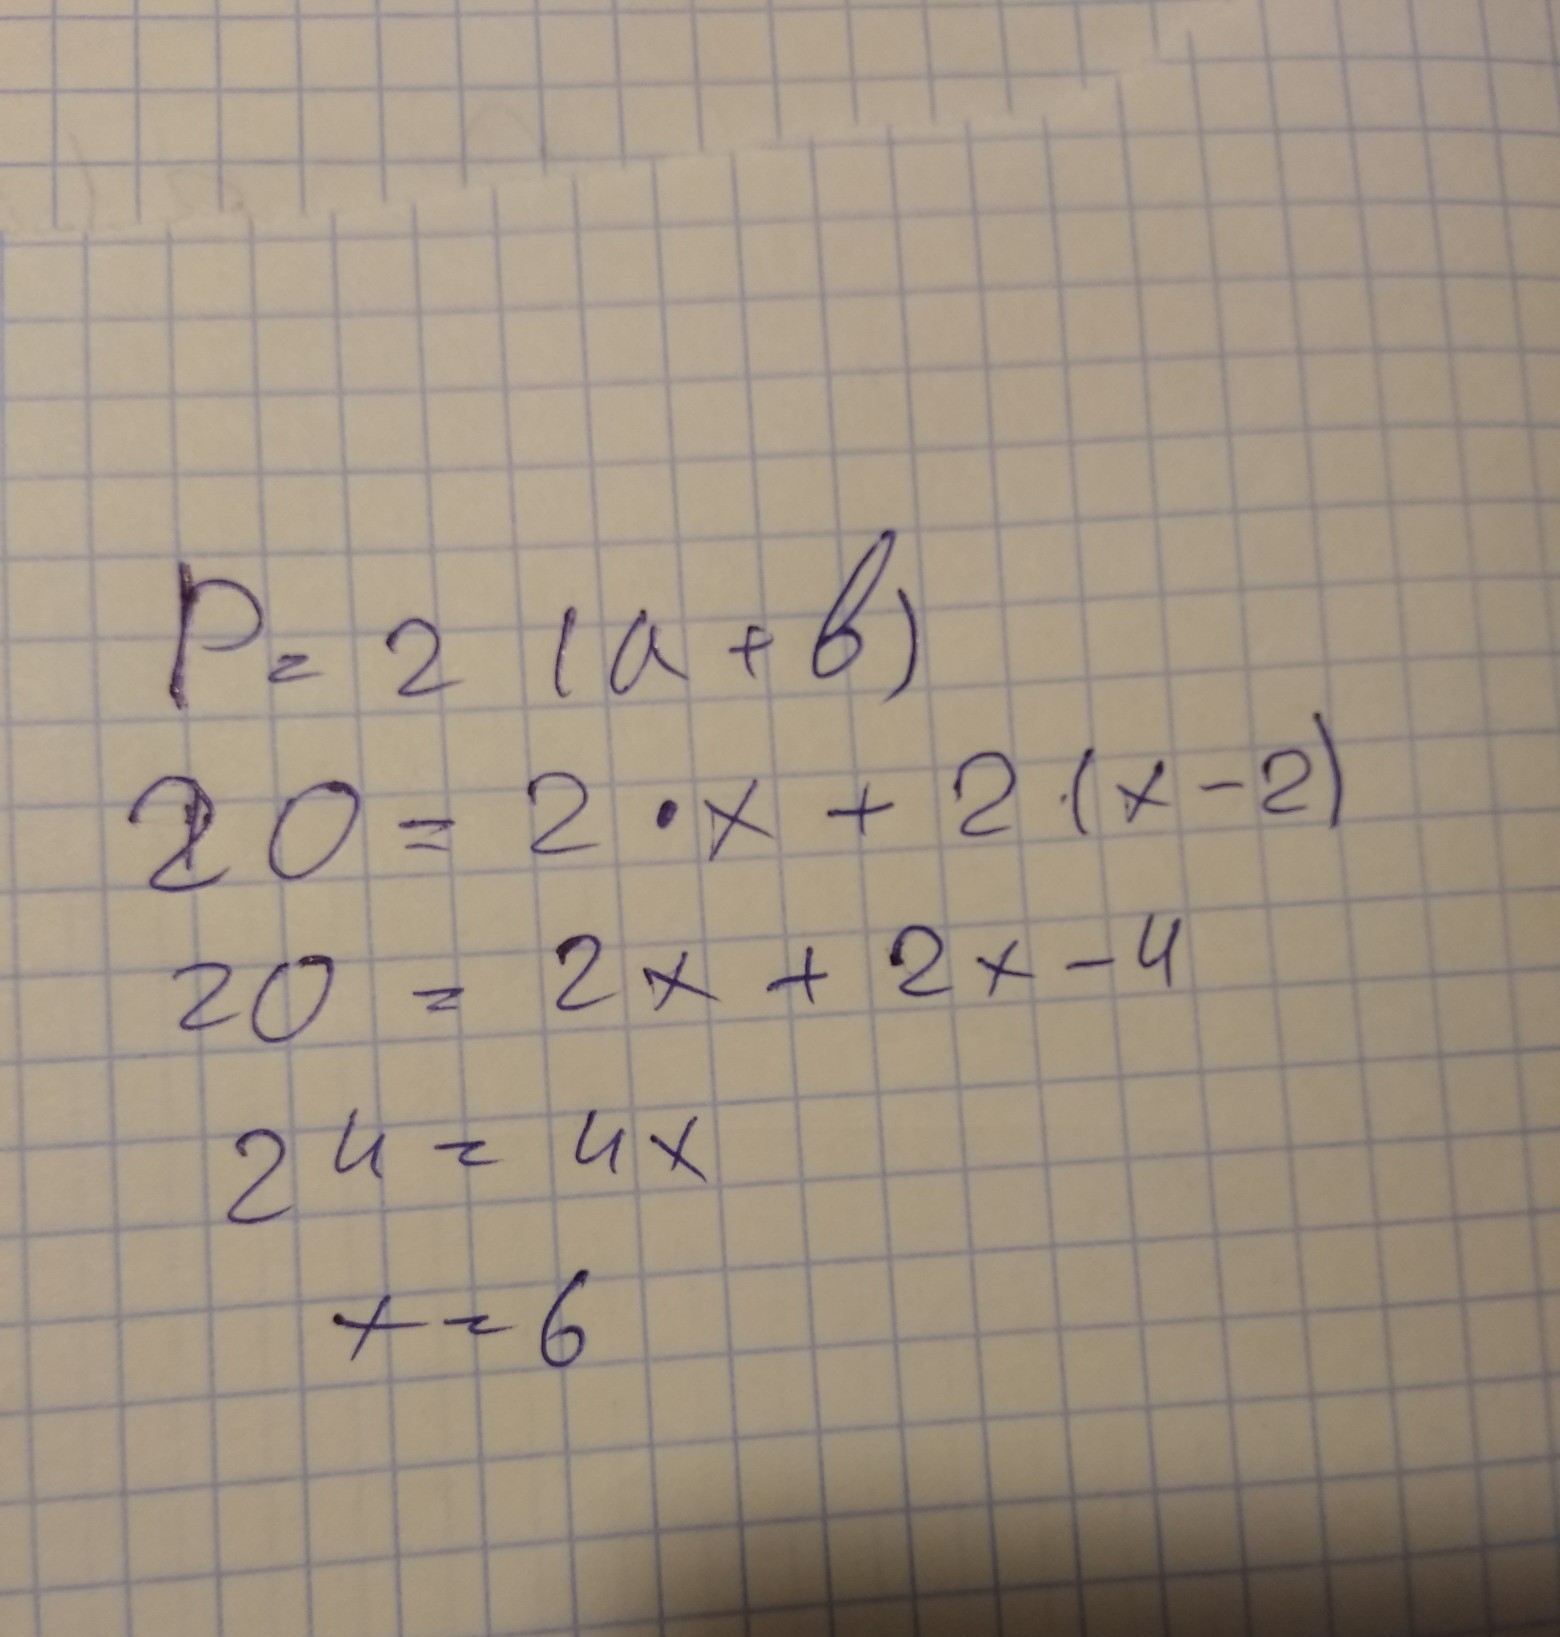 P = 2 (a + b)
20 = 2 • x + 2 (x - 2)
20 = 2x + 2x - 4
24 = 4x
x = 6